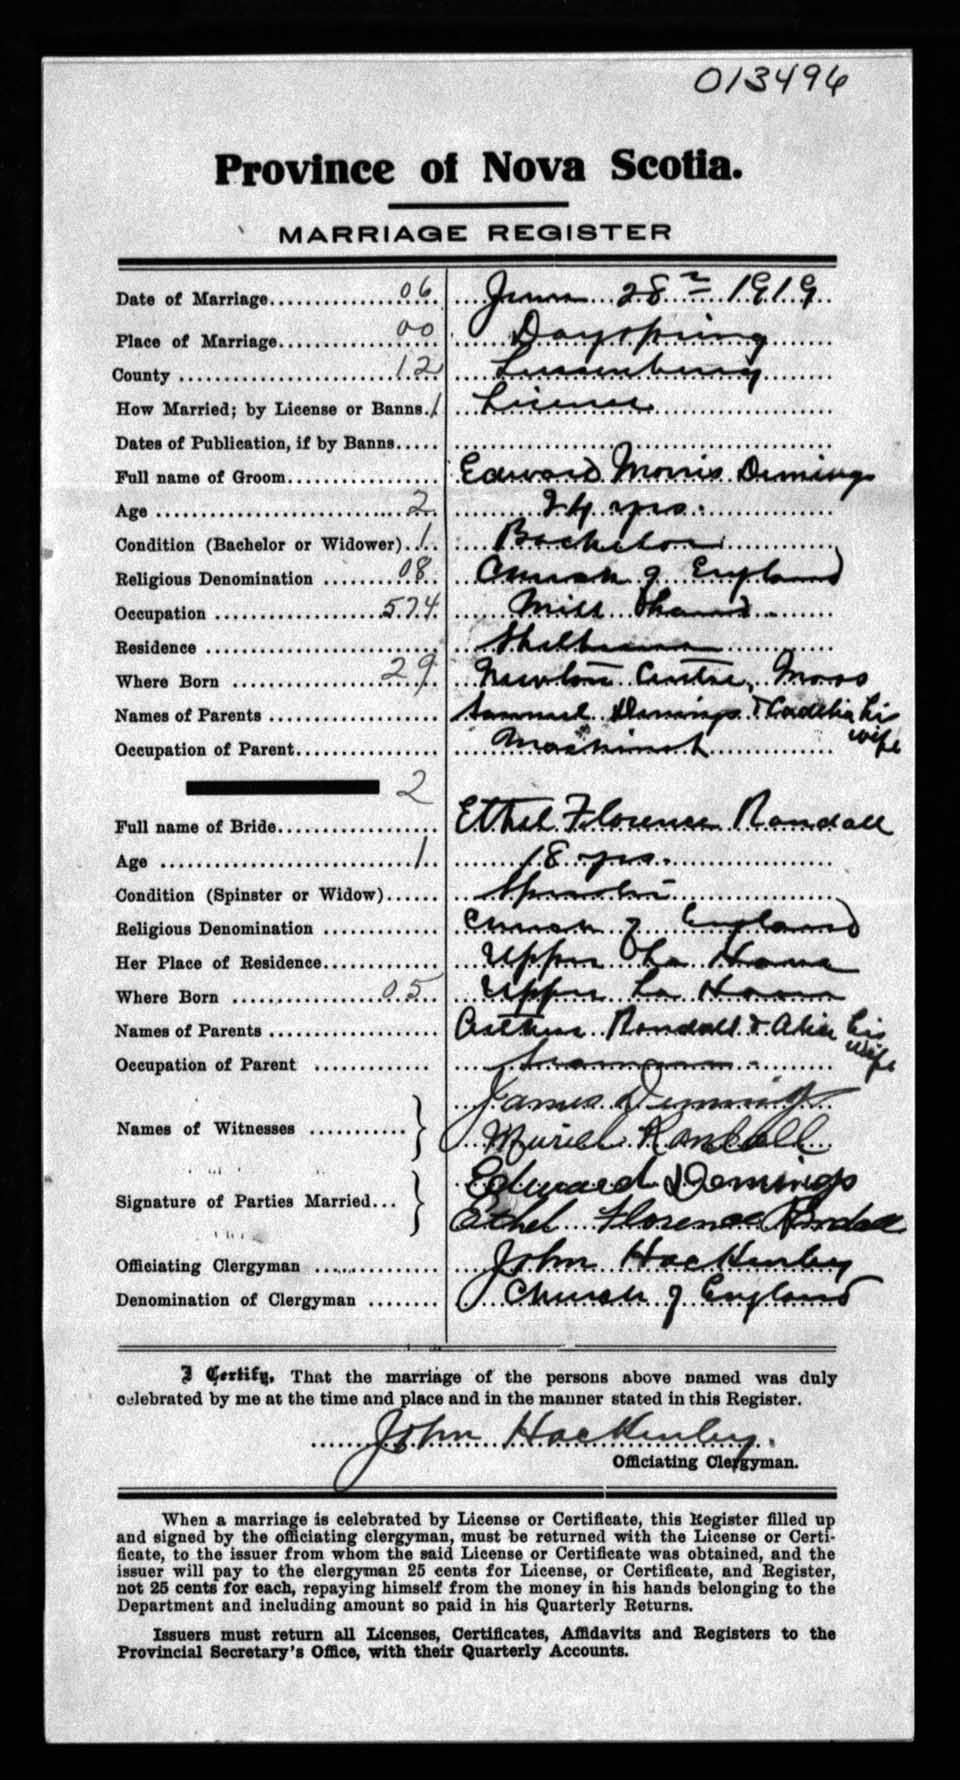 013496
Province of Nova Scotia.
MARRIAGE REGISTER
Date of Marriage 06 June 28th 1919
Place of Marriage 00 Dayspring
County 12 Lunenburg
How Married; by License or Banns. 1 License
Dates of Publication, if by Banns
Full name of Groom Edward Morris Demings
Age 2 24 yrs.
Condition (Bachelor or Widower) 1 Bachelor
Religious Denomination 08 Church of England
Occupation 574 Mill Hand
Residence Shelburne
Where Born 29 Newton Centre, Mass
Names of Parents Samuel Demings & Cordelia his wife
Occupation of Parent Machinist
2
Full name of Bride Ethel Florence Randall
Age 1 18 yrs.
Condition (Spinster or Widow) Spinster
Religious Denomination Church of England
Her Place of Residence Upper La Have
Where Born 05 Upper La Have
Names of Parents Arthur Randall & Alice his wife
Occupation of Parent Seaman
Names of Witnesses } James Demings
Muriel Randall
Signature of Parties Married } Edward Demings
Ethel Florence Randall
Officiating Clergyman John Hackenley
Denomination of Clergyman Church of England
I Certify, That the marriage of the persons above named was duly
celebrated by me at the time and place and in the manner stated in this Register.
John Hackenley.
Officiating Clergyman.
When a marriage is celebrated by License or Certificate, this Register filled up
and signed by the officiating clergyman, must be returned with the License or Certi-
ficate, to the issuer from whom the said License or Certificate was obtained, and the
issuer will pay to the clergyman 25 cents for License, or Certificate, and Register,
not 25 cents for each, repaying himself from the money in his hands belonging to the
Department and including amount so paid in his Quarterly Returns.
Issuers must return all Licenses, Certificates, Affidavits and Registers to the
Provincial Secretary's Office, with their Quarterly Accounts.